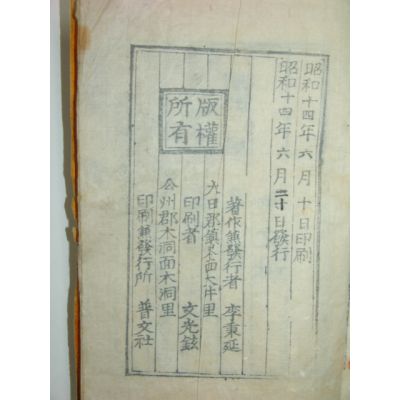 昭和十四年六月十日印刷
昭和十四年六月二十日發行
版權
所有
著作兼發行者 李秉延
郡鎭岑面大井里
印刷者 文光鉉
公州郡木洞面木洞里
印刷兼發行所 普文社